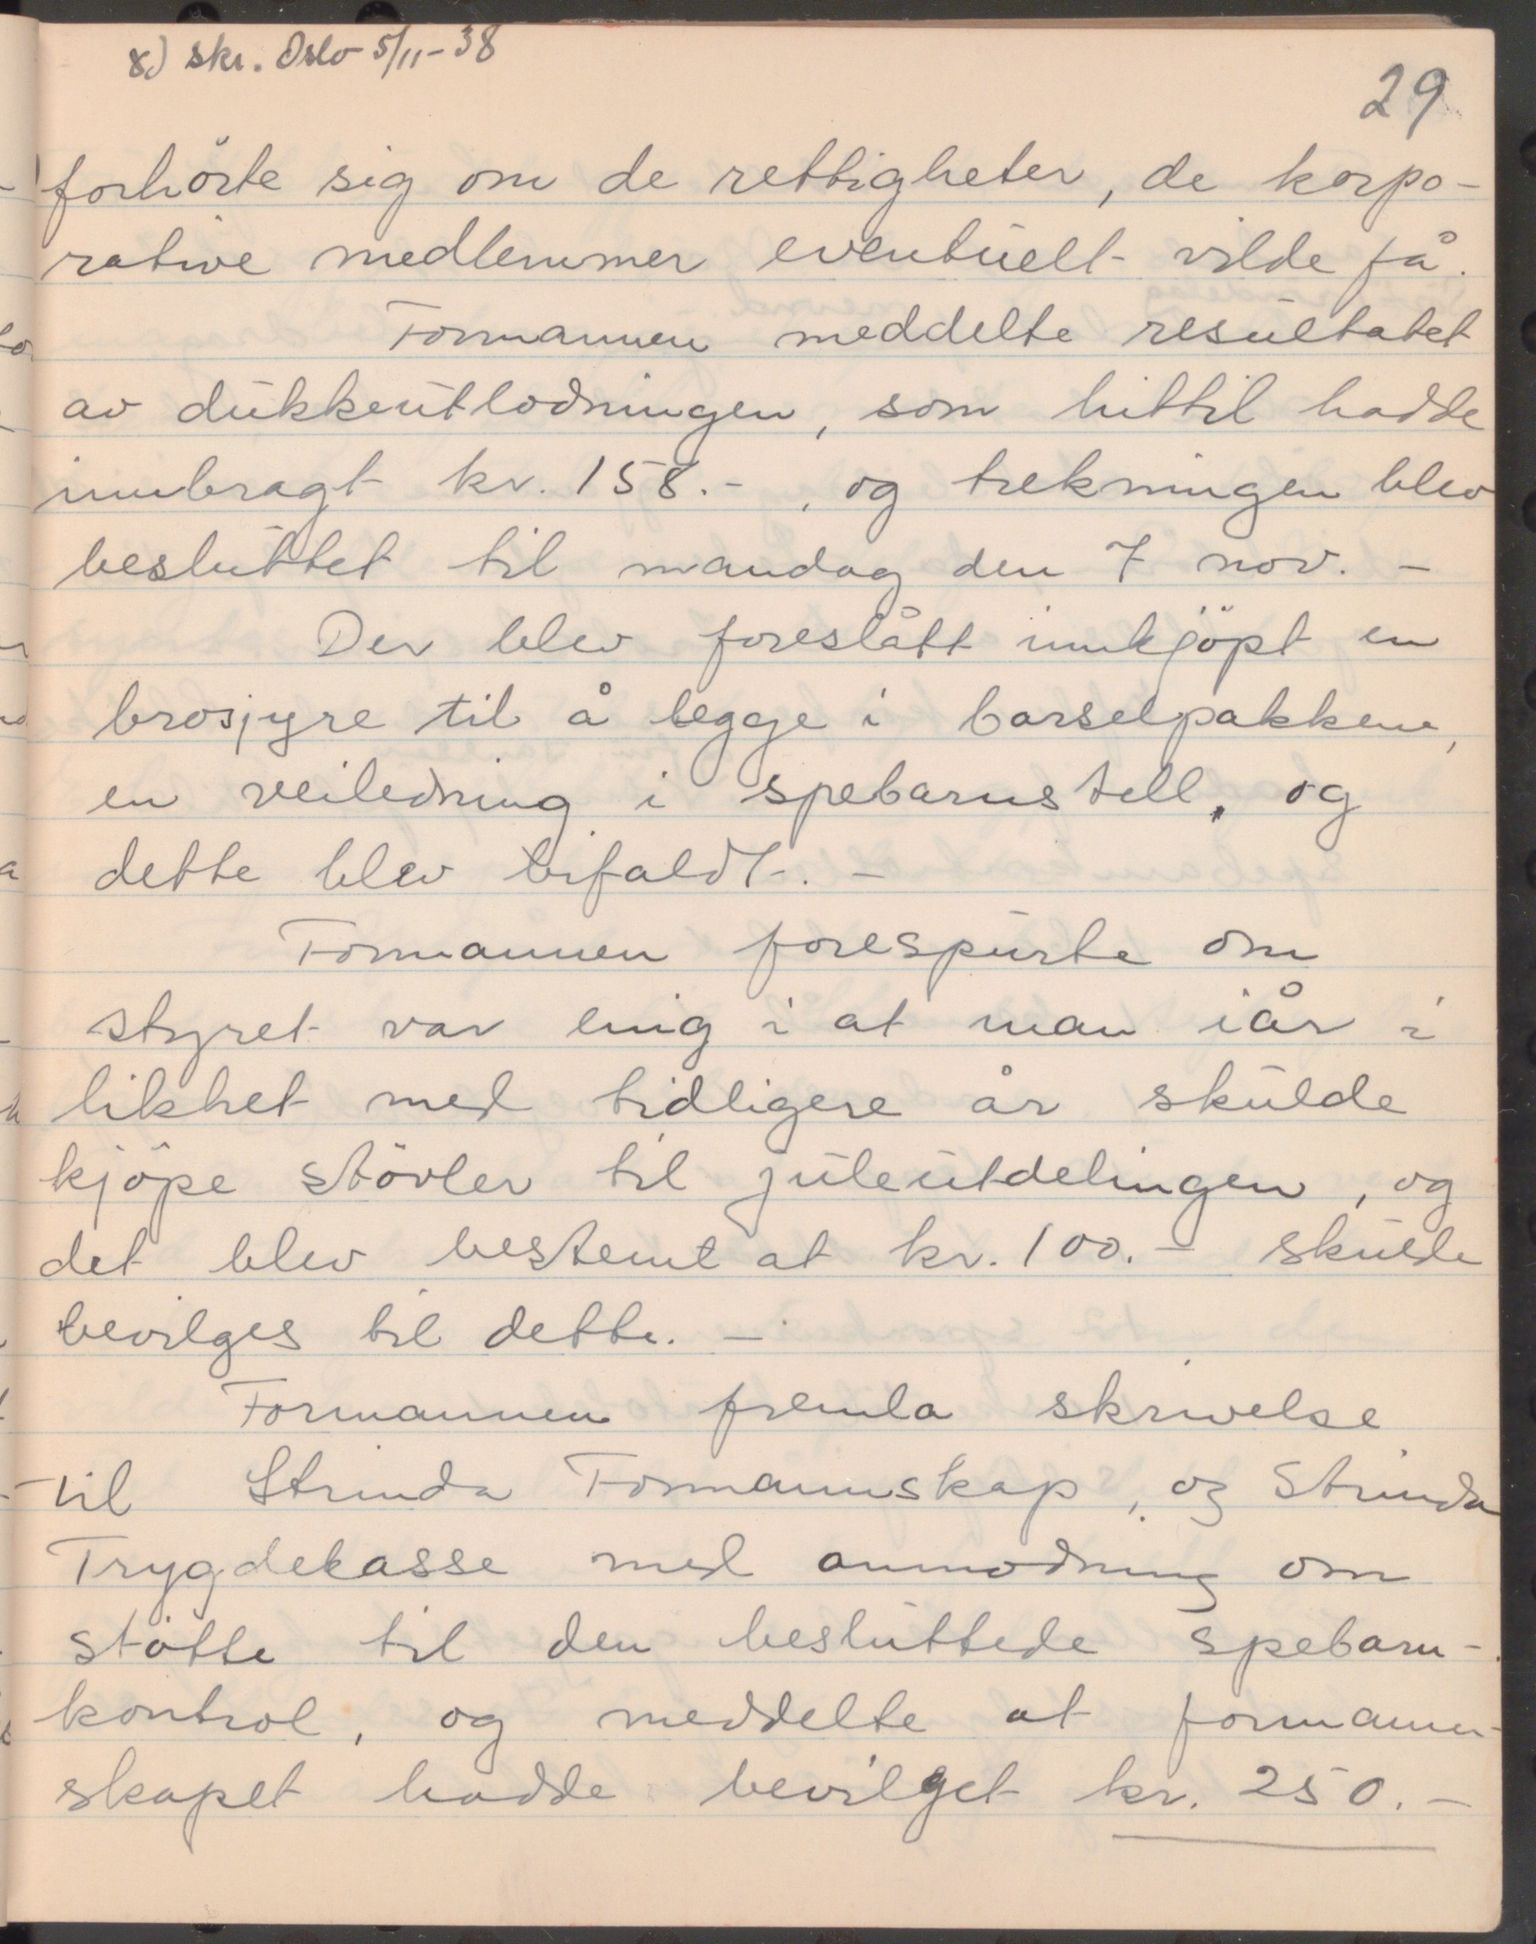 8) skr. Oslo 5/11-38
29
forhörte sig om de rettigheter, de korpo-
rative medlemmer eventuelt vilde få.
Formannen meddelte resultatet
av dukkeutlodningen, som hittil hadde
innbragt kr. 158.-, og trekningen blev
besluttet til mandag den 7 nov. -
Der blev foreslått innkjöpt en
brosjyre til å legge i barselpakkene,
en veiledning i spebarnstell, og
dette blev bifaldt. -
Formannen forespurte om
styret var enig i at man iår i
likhet med tidligere år skulde
kjöpe stövler til juleutdelingen, og
det blev bestemt at kr. 100.- skulde
bevilges til dette. -
Formannen fremla skrivelse
til Strinda Formannskap, og Strinda
Trygdekasse med anmodning om
stötte til den besluttede spebarn-
kontrol, og meddelte at formann-
skapet hadde bevilget kr. 250.-